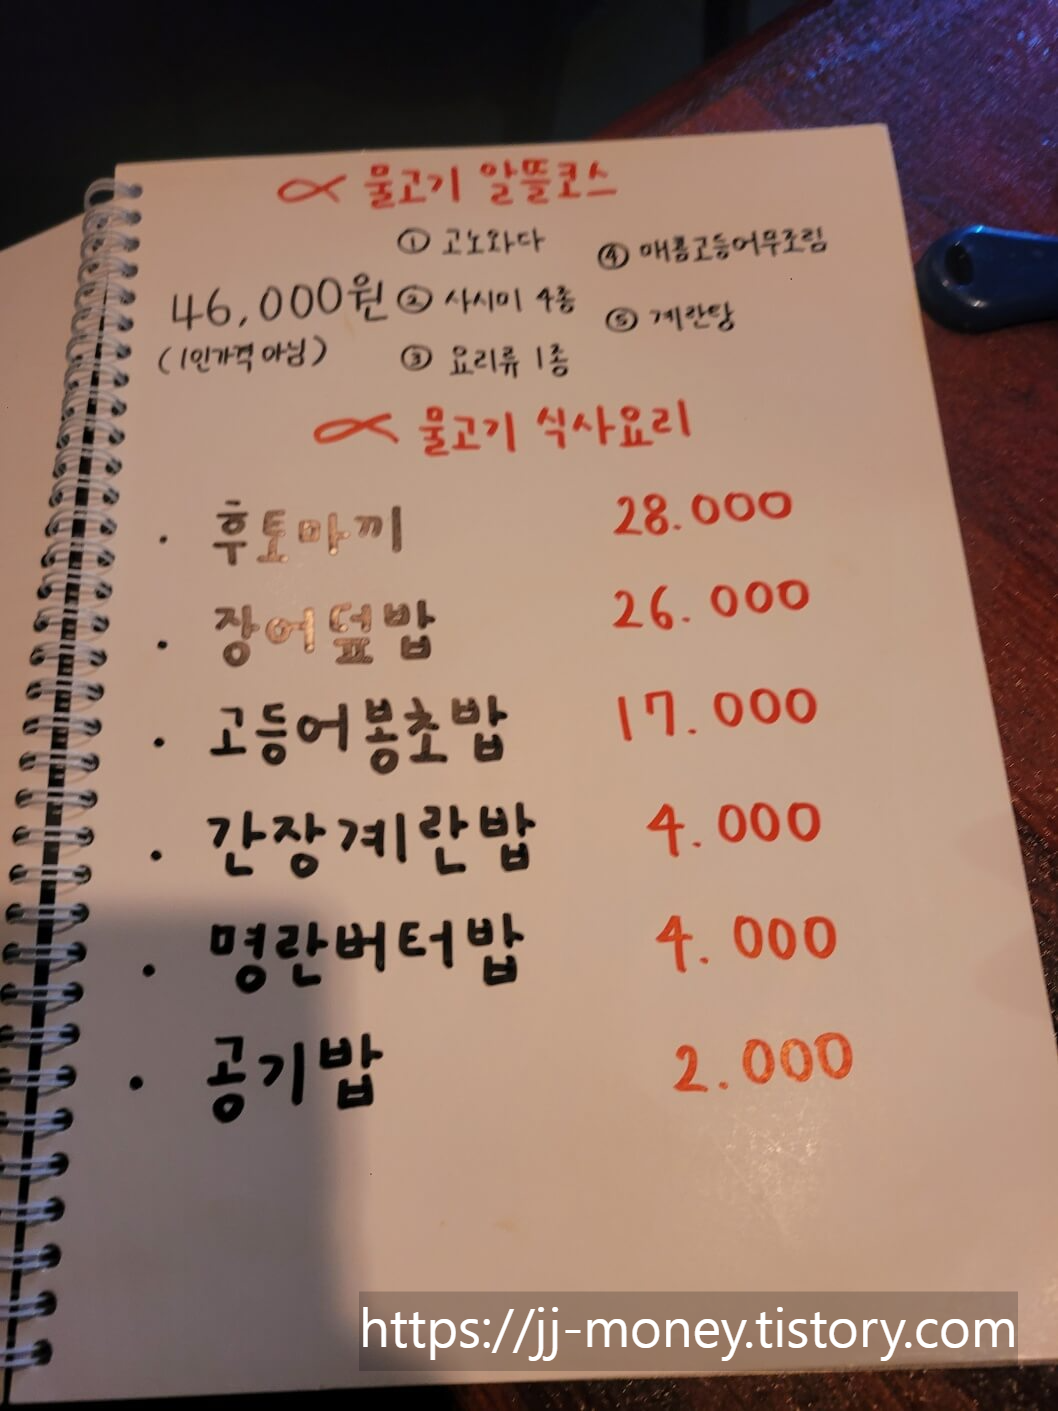 물고기 알뜰코스
46,000원
(1인가격 아님)
① 고노와다
② 사시미 4종
③ 요리류 1종
④ 매콤고등어무조림
⑤ 계란탕
물고기 식사요리
· 후토마끼 28.000
· 장어덮밥 26.000
· 고등어봉초밥 17.000
· 간장계란밥 4.000
· 명란버터밥 4.000
· 공기밥 2.000
https://jj-money.tistory.com